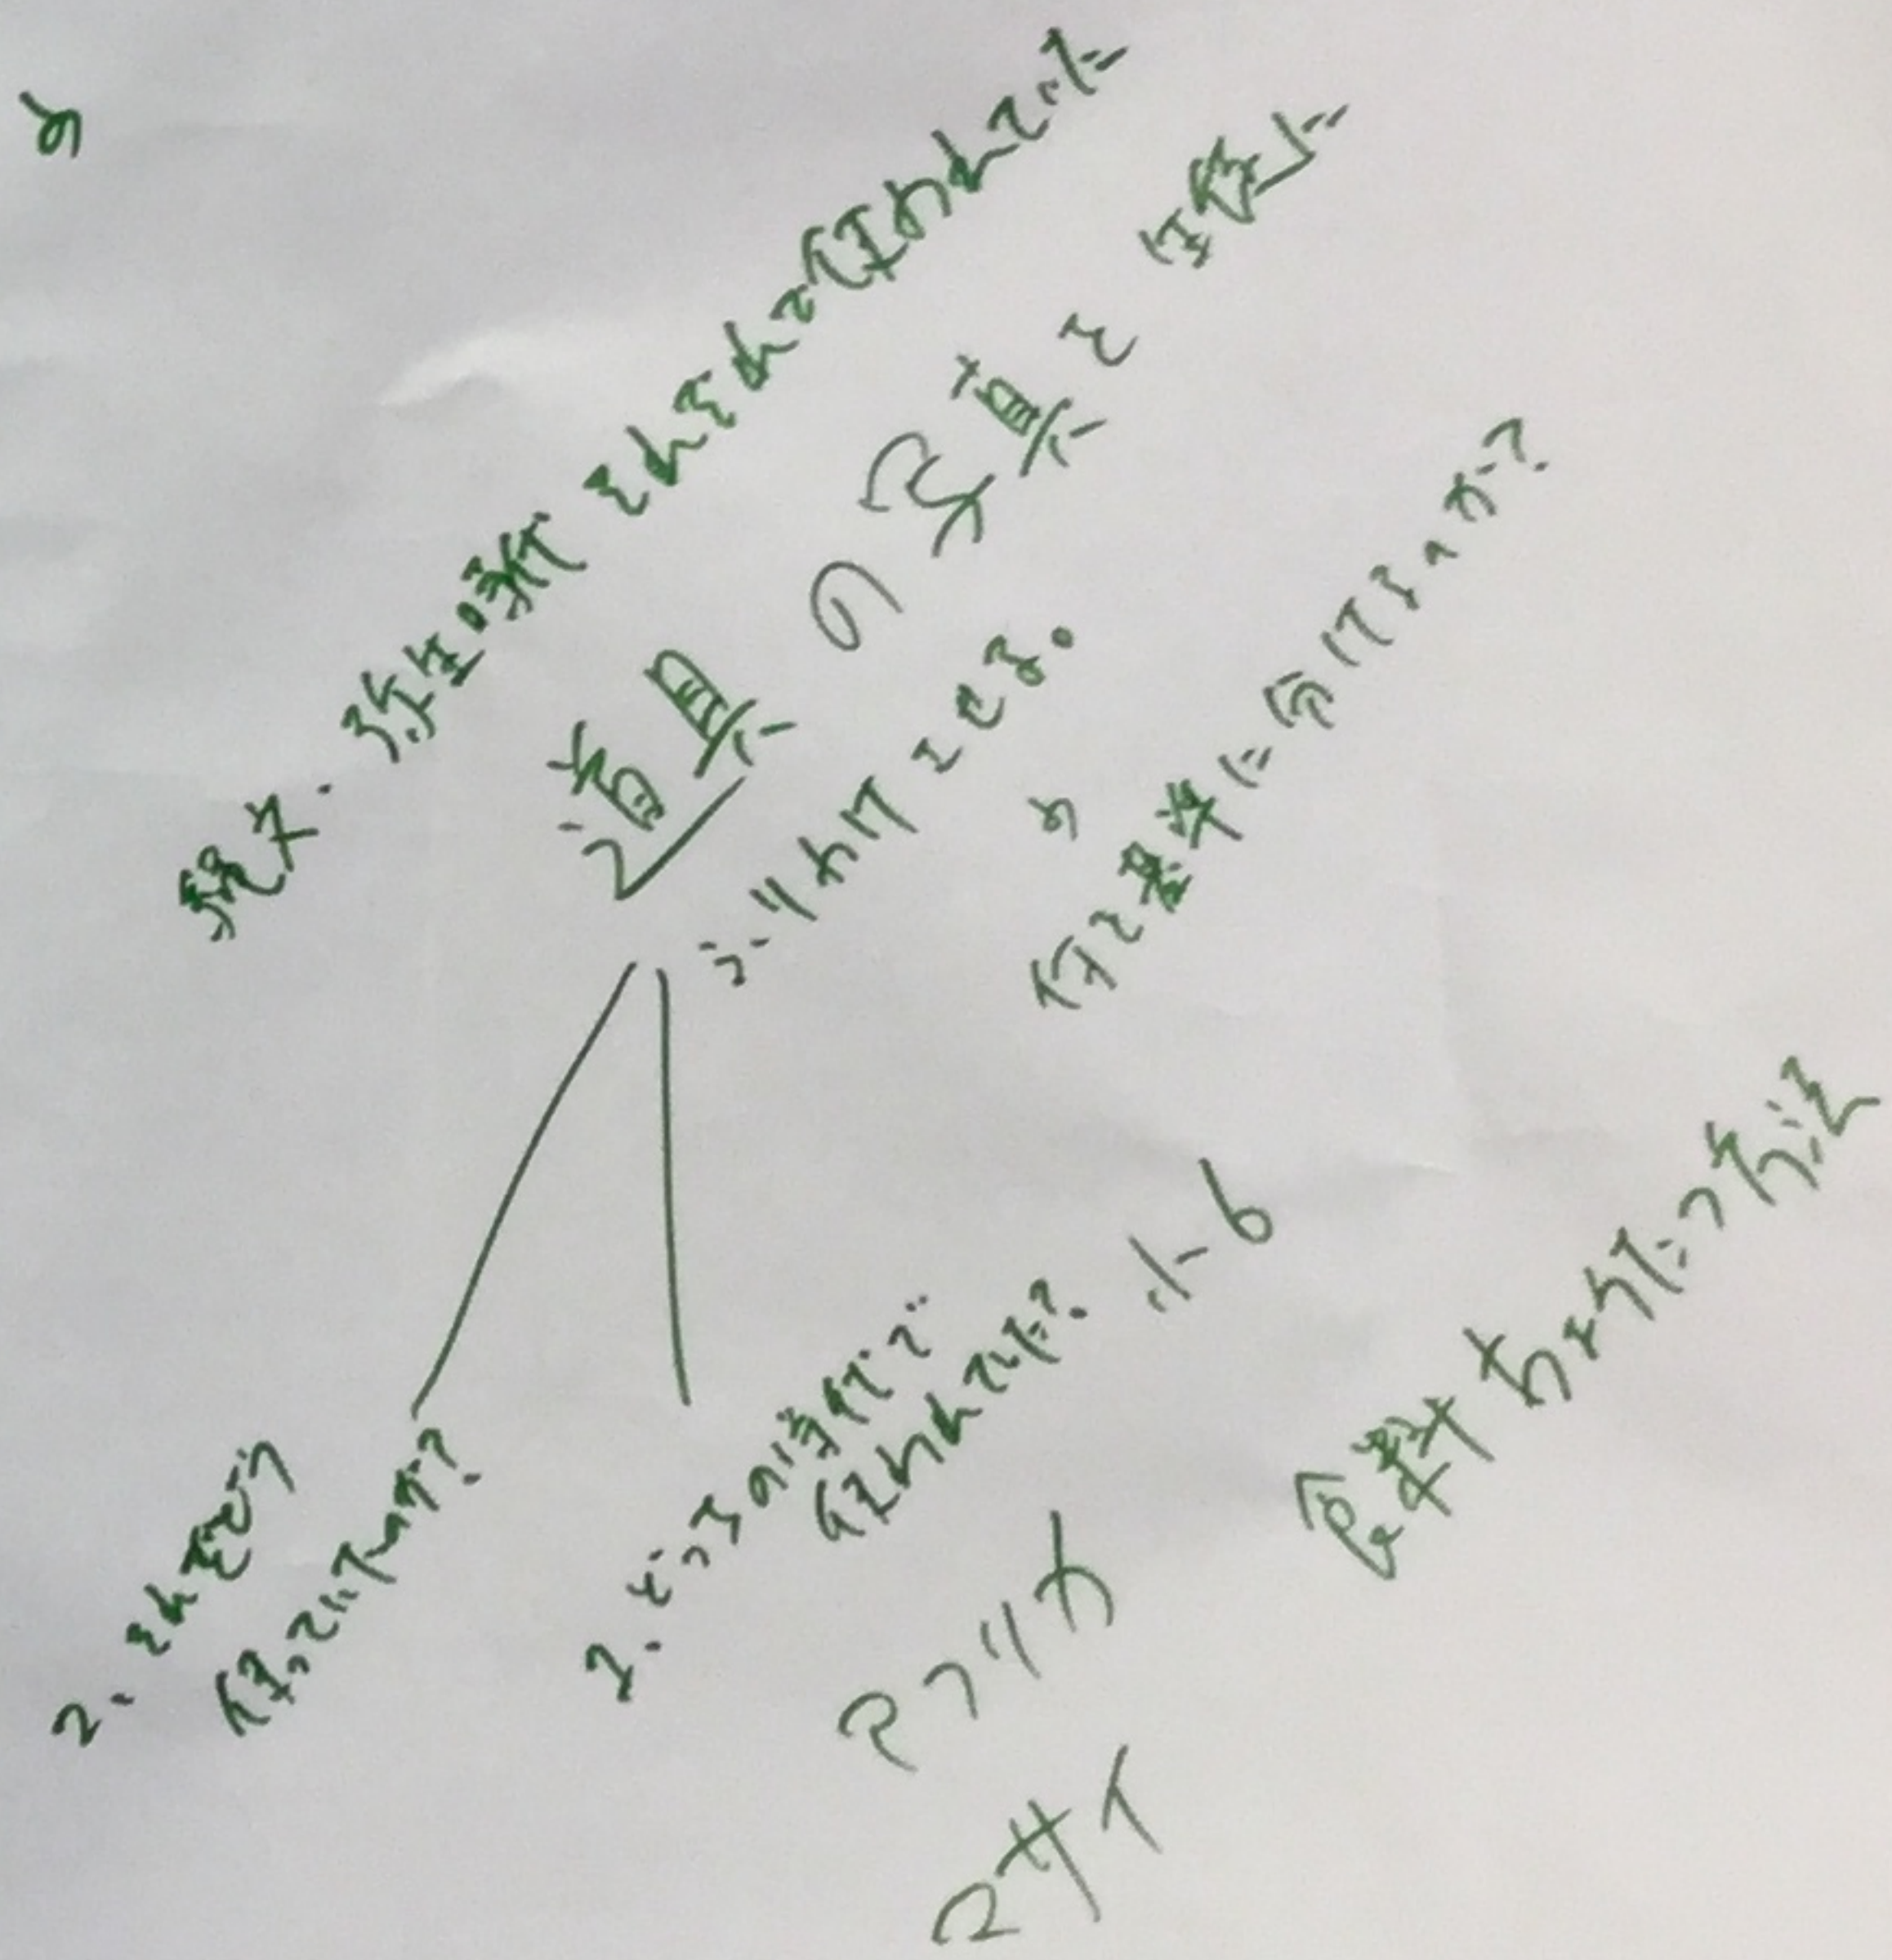 縄文・弥生時代 それぞれで使われていた
道具の写真を 使い
ふりわけさせる。
何を基準に分けるのか?
2. それをどう
使っていたのか?
1. どっちの時代で
使われていた?
小6
アフリカ
マサイ